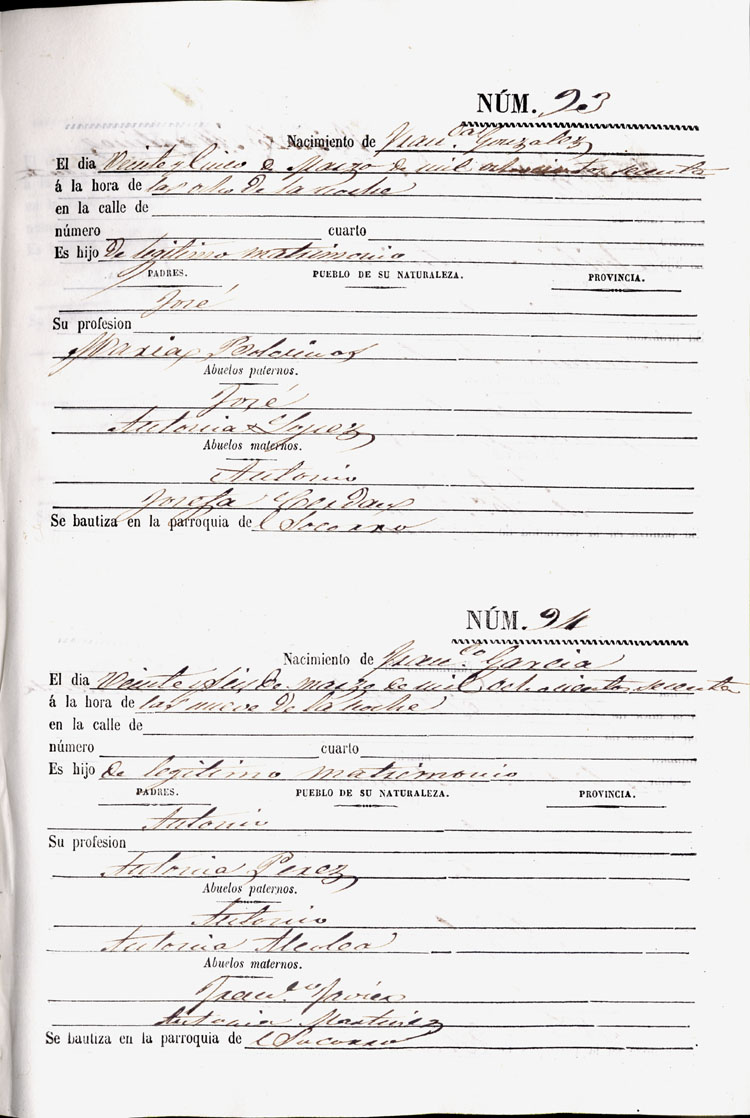 NÚM. 93
Nacimiento de Fran.ca Gonzalez
El dia Veinte y Cinco de Marzo de mil ochocientos sesenta
á la hora de las ocho de la noche
en la calle de
número cuarto
Es hijo de legitimo matrimonio
PADRES. PUEBLO DE SU NATURALEZA. PROVINCIA.
José
Su profesion
Maria
Abuelos paternos.
José
Antonia Lopez
Abuelos maternos.
Antonio
Josefa
Se bautiza en la parroquia de el Socorro
NÚM. 94
Nacimiento de Fran.co Garcia
El dia Veinte y Seis de marzo de mil ochocientos sesenta
á la hora de las nueve de la noche
en la calle de
número cuarto
Es hijo de legitimo matrimonio
PADRES. PUEBLO DE SU NATURALEZA. PROVINCIA.
Antonio
Su profesion
Antonia Perez
Abuelos paternos.
Antonio
Antonia Alcolea
Abuelos maternos.
Fran.co Javier
Antonia Martinez
Se bautiza en la parroquia de el Socorro